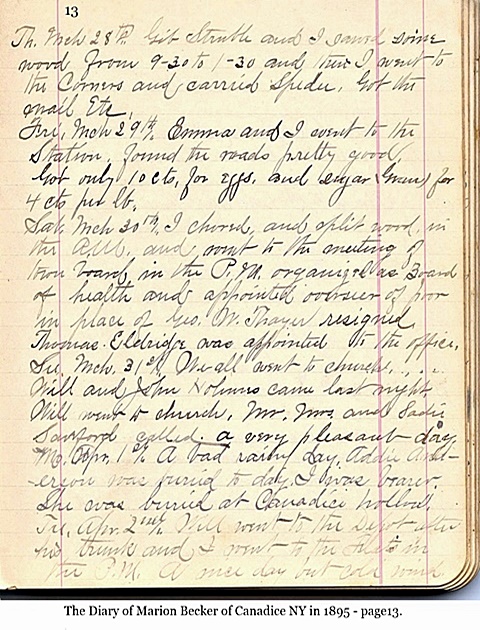 13
Th. Mch 28th. Git Struble and I sawed some
wood from 9-30 to 1-30 and then I went to
the Corners and carried Speder. Got the
mail Etc.
Fri, Mch 29th, Emma and I went to the
Station, found the roads pretty good,
Got only 10 cts, for eggs, and sugar (Gran) for
4 cts per lb.
Sat, Mch 30th, I chored, and split wood, in
the A.M. and went to the meeting of
town board, in the P.M. organized as Board
of health and appointed overseer of poor
in place of Geo. W. Thayer resigned,
Thomas Eldridge was appointed to the office.
Su, Mch, 31st, We all went to church....
Will and John Holmes came last night.
Will went to church, Mr. Mrs. and Sadie
Sanford called, a very pleasant day.
M, Apr, 1st, A bad rainy day, Addie And-
erson was buried to day. I was bearer.
She was buried at Canadice hollow.
Tu, Apr. 2nd, Will went to the Depot after
his trunk and I went to the Flats in
the P.M. A nice day but cold wind
The Diary of Marion Becker of Canadice NY in 1895 - page13.